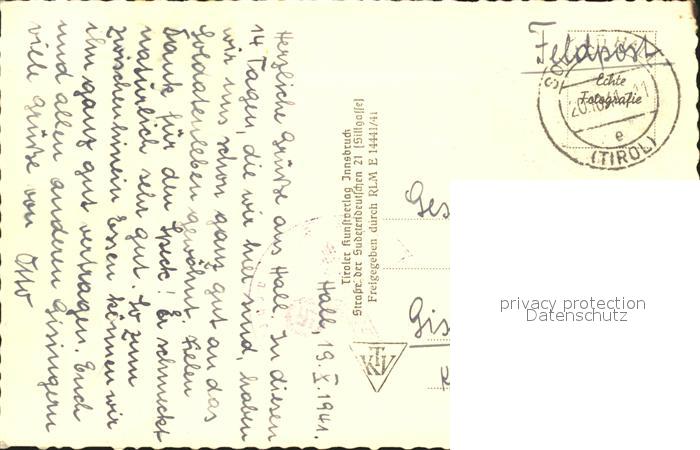 Hall, 19.X.1941.
Herzliche Grüße aus Hall. In diesen
14 Tagen, die wir hier sind, haben
wir uns schon ganz gut an das
Soldatenleben gewöhnt. Vielen
Dank für den Speck! Er schmeckt
natürlich sehr gut. So zum
zwischenhinein Essen können wir
ihn ganz gut vertragen. Euch
und allen anderen Gisingern
viele Grüße von Otto
Tiroler Kunstverlag Innsbruck
Straße der Sudetendeutschen 21 (Sillgasse)
Freigegeben durch RLM E 14441/41
KTV
Feldpost
Echte
Fotografie
e
(TIROL)
Ges
Gis
privacy protection
Datenschutz